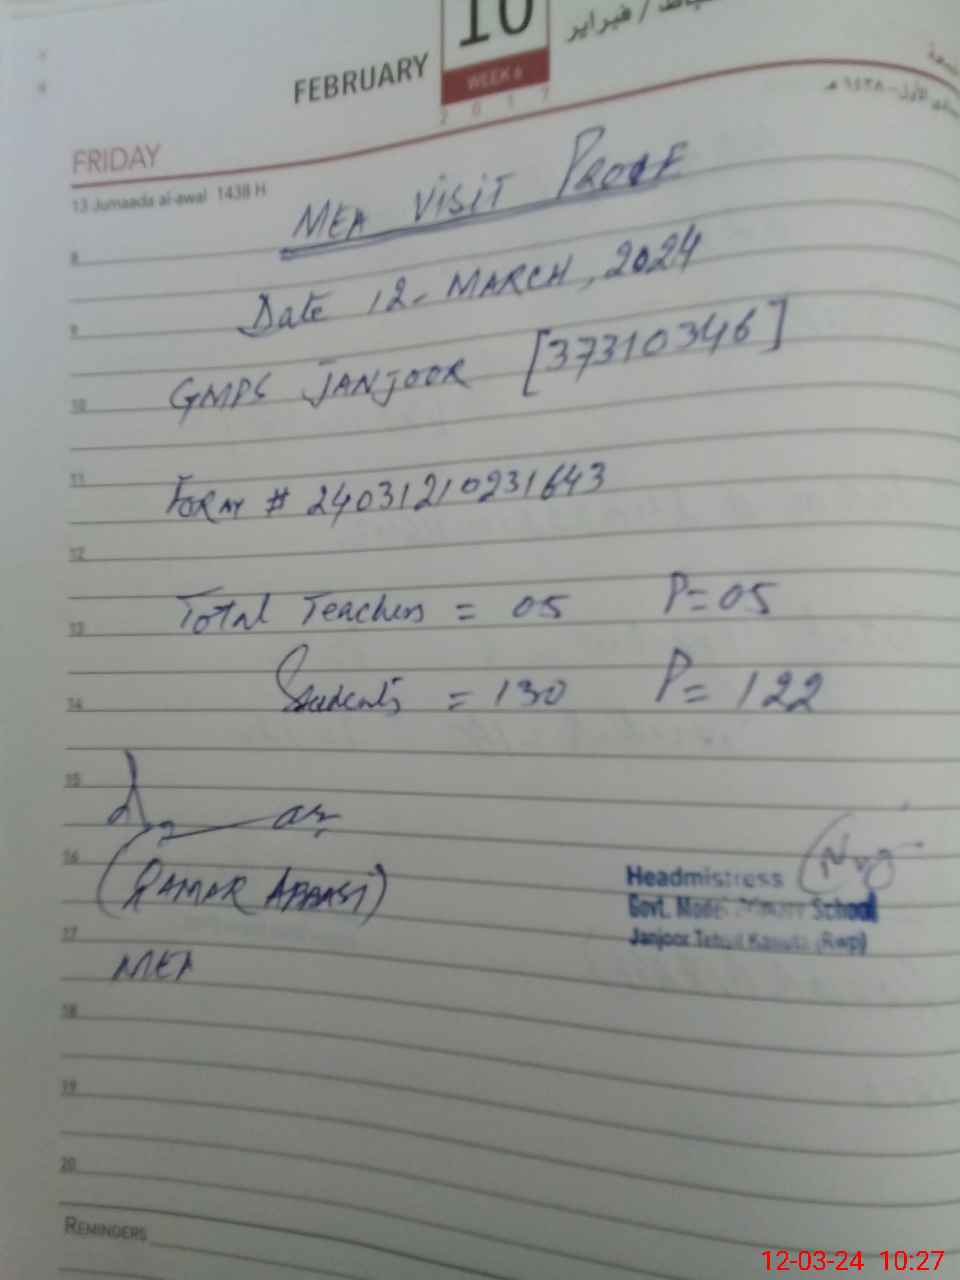 FEBRUARY 10
WEEK 6
2017
شباط / فبراير
FRIDAY
13 Jumaada al-awal 1438 H
MEA VISIT PROOF
8
Date 12- MARCH, 2024
9
GMPS JANJOOR [37310346]
10
11
FORM # 24031210231643
12
Total Teachers = 05 P= 05
13
Students = 130 P= 122
14
15
16
(QAMAR ABBASI)
Headmistress
Govt. Model Primary School
17
Janjoor Tehsil Kahuta (Rwp)
MEA
18
19
20
REMINDERS
12-03-24 10:27